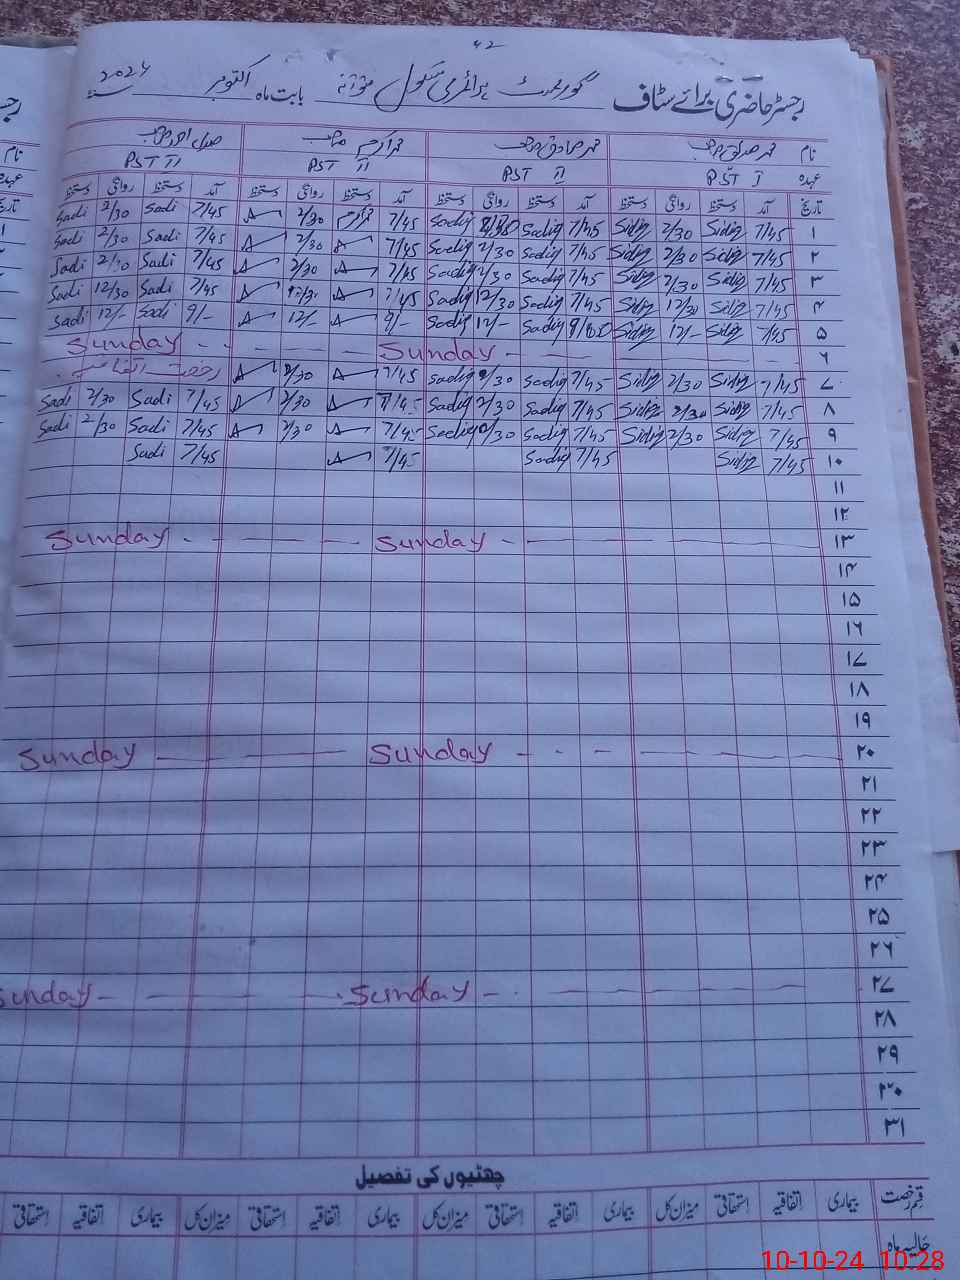 ۴۲
رجسٹر حاضری برائے سٹاف گورنمنٹ پرائمری سکول بابت ماہ اکتوبر سنہ 2024
نام محمد صدیق صاحب محمد صادق صاحب محمد اکرم صاحب
عہدہ PST I PST II PST II PST II
تاریخ آمد دستخط روانگی دستخط آمد دستخط روانگی دستخط آمد دستخط روانگی دستخط آمد دستخط روانگی دستخط
۱ 7/45 Sidiq 2/30 Sidiq 7/45 Sadiq Sadiq 7/45 محمد اکرم 2/30 7/45 Sadi 2/30 Sadi
۲ 7/45 Sidiq 2/30 Sidiq 7/45 Sadiq 2/30 Sadiq 7/45 2/30 7/45 Sadi 2/30 Sadi
۳ 7/45 Sidiq 2/30 Sidiq 7/45 Sadiq 2/30 Sadiq 7/45 2/30 7/45 Sadi 2/30 Sadi
۴ 7/45 Sidiq 12/30 Sidiq 7/45 Sadiq 12/30 Sadiq 7/45 12/30 7/45 Sadi 12/30 Sadi
۵ 7/45 Sidiq 12/- Sidiq Sadiq 12/- Sadiq 9/- 12/- 9/- Sadi 12/- Sadi
۶ Sunday - - - - - Sunday - - - - -
۷ 7/45 Sidiq 2/30 Sidiq 7/45 Sadiq 2/30 Sadiq 7/45 2/30 رخصت اتفاقیہ
۸ 7/45 Sidiq 2/30 Sidiq 7/45 Sadiq 2/30 Sadiq 7/45 2/30 7/45 Sadi 2/30 Sadi
۹ 7/45 Sidiq 2/30 Sidiq 7/45 Sadiq 2/30 Sadiq 7/45 2/30 7/45 Sadi 2/30 Sadi
۱۰ 7/45 Sidiq 7/45 Sadiq 7/45 7/45 Sadi
۱۱
۱۲
۱۳ Sunday - - - - - Sunday - - - - -
۱۴
۱۵
۱۶
۱۷
۱۸
۱۹
۲۰ Sunday - - - - - Sunday - - - - -
۲۱
۲۲
۲۳
۲۴
۲۵
۲۶
۲۷ Sunday - - - - - Sunday - - - - -
۲۸
۲۹
۳۰
۳۱
چھٹیوں کی تفصیل
قسم رخصت بیماری اتفاقیہ استحقاقی میزان کل بیماری اتفاقیہ استحقاقی میزان کل بیماری اتفاقیہ استحقاقی میزان کل بیماری اتفاقیہ استحقاقی
حالیہ ماہ
10-10-24 10:28